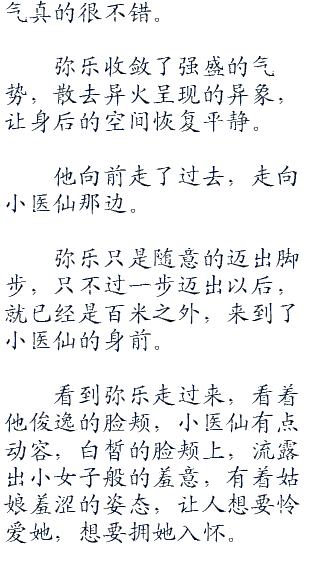 气真的很不错。
弥乐收敛了强盛的气
势，散去异火呈现的异象，
让身后的空间恢复平静。
他向前走了过去，走向
小医仙那边。
弥乐只是随意的迈出脚
步，只不过一步迈出以后，
就已经是百米之外，来到了
小医仙的身前。
看到弥乐走过来，看着
他俊逸的脸颊，小医仙有点
动容，白皙的脸颊上，流露
出小女子般的羞意，有着姑
娘羞涩的姿态，让人想要怜
爱她，想要拥她入怀。